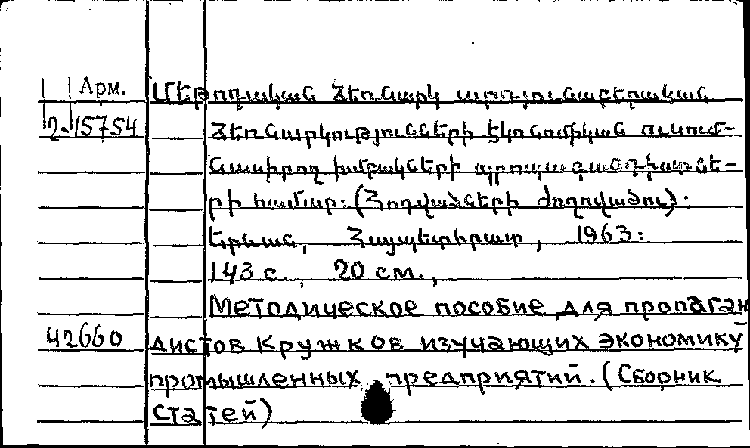 Арм. Մեթոդական ձեռնարկ արդյունաբերական
2-15754 ձեռնարկությունների էկոնոմիկան ուսում-
նասիրող խմբակների պրոպագանդիստնե-
րի համար: (Հոդվածների ժողովածու):
Երևան, Հայպետհրատ, 1963:
143 с., 20 см.,
Методическое пособие для пропаган
42660 дистов кружков изучающих экономику
промышленных предприятий. (Сборник
статей)